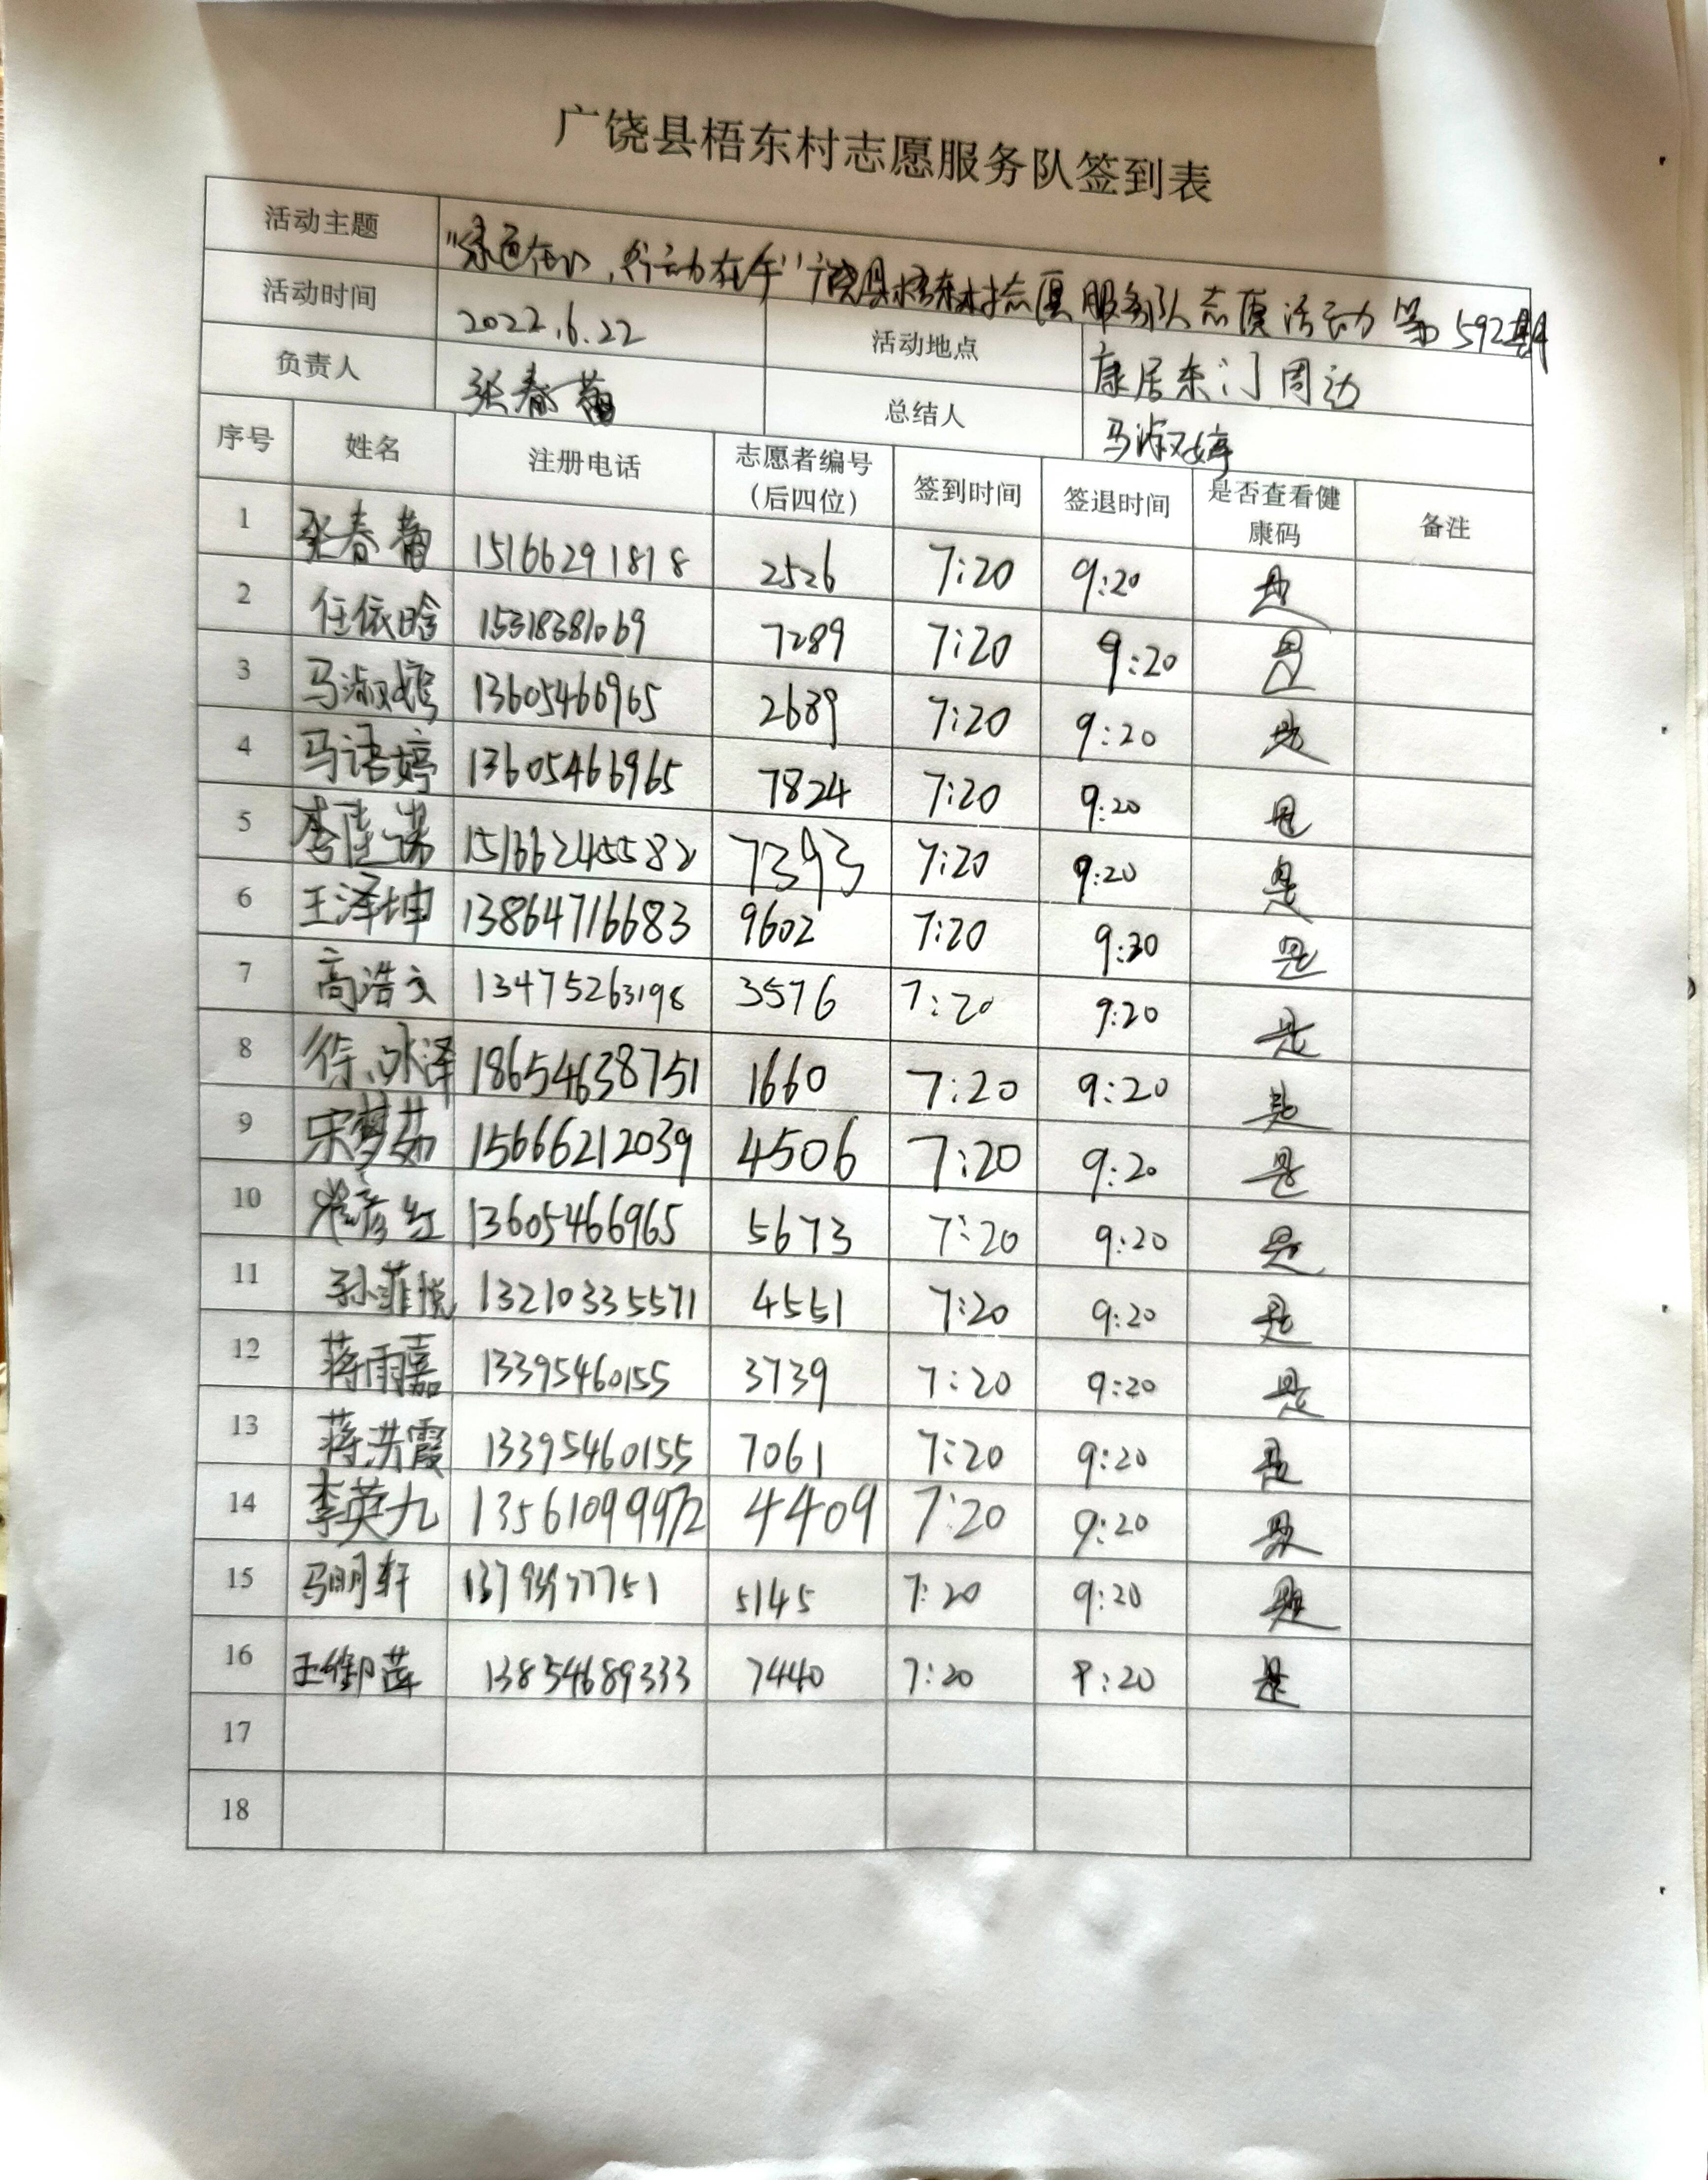 广饶县梧东村志愿服务队签到表
活动主题 "绿色在心，行动在手"广饶县梧东村志愿服务队志愿活动第592期
活动时间 2022.6.22 活动地点 康居东门周边
负责人 张春蕾 总结人 马淑婷
序号 姓名 注册电话 志愿者编号（后四位） 签到时间 签退时间 是否查看健康码 备注
1 张春蕾 15166291818 2526 7:20 9:20 是
2 任依晗 15318381069 7289 7:20 9:20 是
3 马淑婷 13605466965 2689 7:20 9:20 是
4 马语婷 13605466965 7824 7:20 9:20 是
5 李佳诺 15166245582 7393 7:20 9:20 是
6 王泽坤 13864716683 9602 7:20 9:30 是
7 高浩文 13475263198 3576 7:20 9:20 是
8 徐冰泽 18654638751 1660 7:20 9:20 是
9 宋梦茹 15666212039 4506 7:20 9:20 是
10 红 13605466965 5673 7:20 9:20 是
11 孙菲悦 13210335571 4551 7:20 9:20 是
12 蒋雨嘉 13395460155 3739 7:20 9:20 是
13 蒋洪霞 13395460155 7061 7:20 9:20 是
14 李英九 13561099972 4409 7:20 9:20 是
15 马明轩 5145 7:20 9:20 是
16 王御萍 13854689333 7440 7:20 9:20 是
17
18